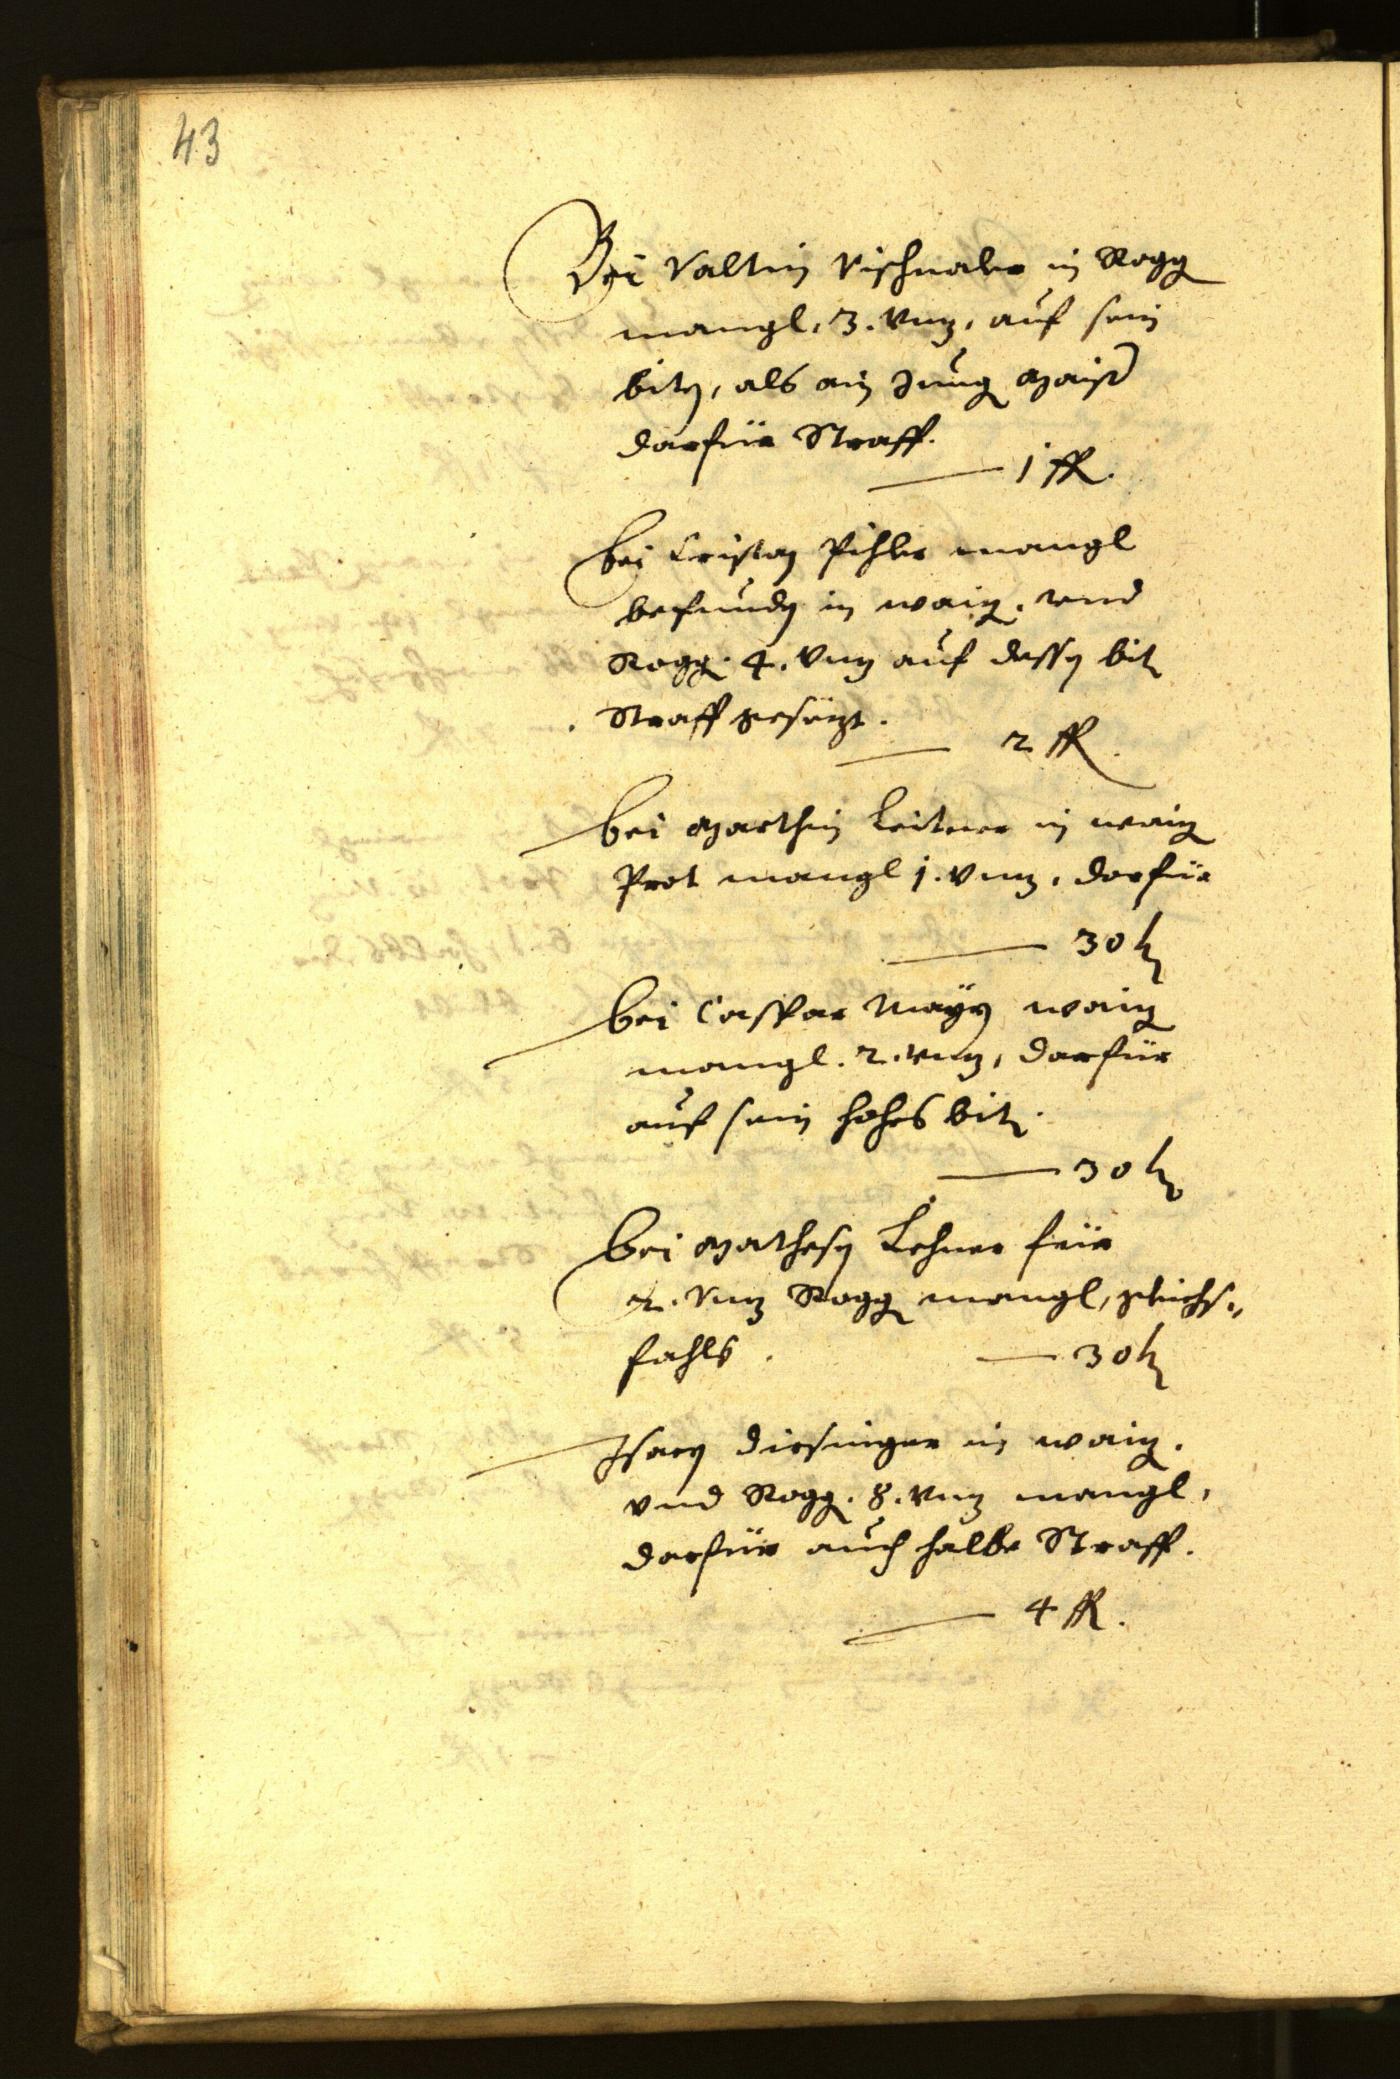 43
Bei Valtin Vischnaler in Rogg
mangl, 3. Vnz, auf sein
bitn, als ain Jung maister
darfür Straff.
— 1 fl.
bei Cristan Pihler mangl
befundn in waiz. vnd
Rogg. 4. Vnz auf dessn bit
Straff gesözt.
— 2 fl.
bei Marthin Leitner in waiz
Prot mangl 1. Vnz, darfür
— 30 k
bei Caspar Mayr waiz
mangl. 2. vnz, darfür
auf sein hohes bit.
— 30 k
bei Mathesn Lehner für
2. Vnz Rogg mangl, gleichs-
fahls. — 30 k
Isacn Diesinger in waiz.
vnd Rogg. 8. Vnz mangl,
darfür auch halbe Straff.
— 4 fl.